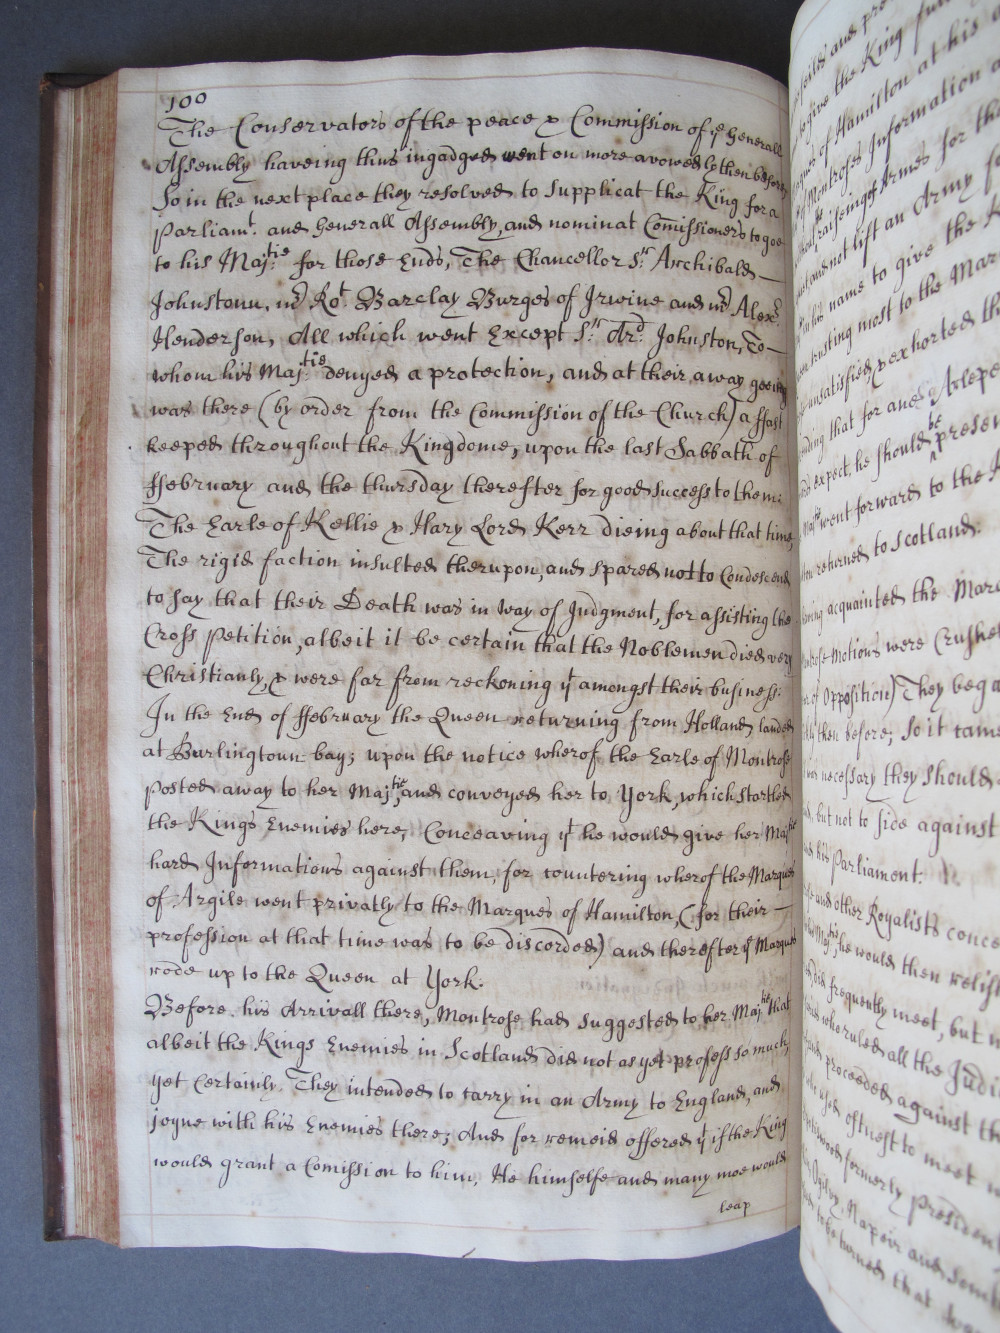 100
The Conservators of the peace & Commission of ye Generall
Assembly haveing thus ingadged went on more avowedly then before
So in the next place they resolved to supplicat the King for a
Parliamt. and Generall Assembly, and nominat Comissioners to goe
to his Majtie for those Ends, The Chancellor Sr. Archibald
Johnstoun, mr Rot. Barclay Burges of Irwine and mr Alexr.
Henderson, All which went Except Sr. Ard. Johnston, To
whom his Majtie denyed a protection, and at their away goeing
was there (by order from the Commission of the Church) a ffast
keeped throughout the Kingdome, upon the last Sabbath of
ffebruary and the thursday thereafter for good success to them:
The Earle of Kellie & Hary Lord Kerr dieing about that time,
The rigid faction insulted therupon, and spared not to Condescend
to say that their Death was in way of Judgment, for assisting the
Cross Petition, albeit it be certain that the Noblemen died very
Christianly, & were far from reckoning yt amongst their business:
In the End of ffebruary the Queen returning from Holland landed
at Burlingtoun bay; upon the notice wherof the Earle of Montrose
Posted away to her Majtie, and conveyed her to York, which startled
the Kings Enemies here, Conceaving yt he would give her Majtie
hard Informations against them, for countering wherof the Marques
of Argile went privatly to the Marques of Hamilton, (for their
profession at that time was to be discorded) and therefter ye Marques
rode up to the Queen at York.
Before his Arrivall there, Montrose had suggested to her Majtie that
albeit the Kings Enemies in Scotland did not as yet profess so much,
yet Certainly They intended to carry in an Army to England, and
joyne with his Enemies there; And for remeid offered yt if the King
would grant a Comission to him, He himselfe and many moe would
leap
give the King
of Hamilton at his
Montroses Information
raising of Armes for the
and not lift an Army
in his name to give the
trusting most to the
unsatisfied, & exhorted
that for ane
expect, he should be present
went forward to the
returned to Scotland.
acquainted the
Motions were Crushed
of Opposition) They beg
then before; So it came
necessary they should
but not to side against
his Parliament.
and other Royalists
he would then
frequently meet, but
who ruled all the
proceeded against
oftnest to meet
formerly President
Ogilvy, Napeir and
to be turned that